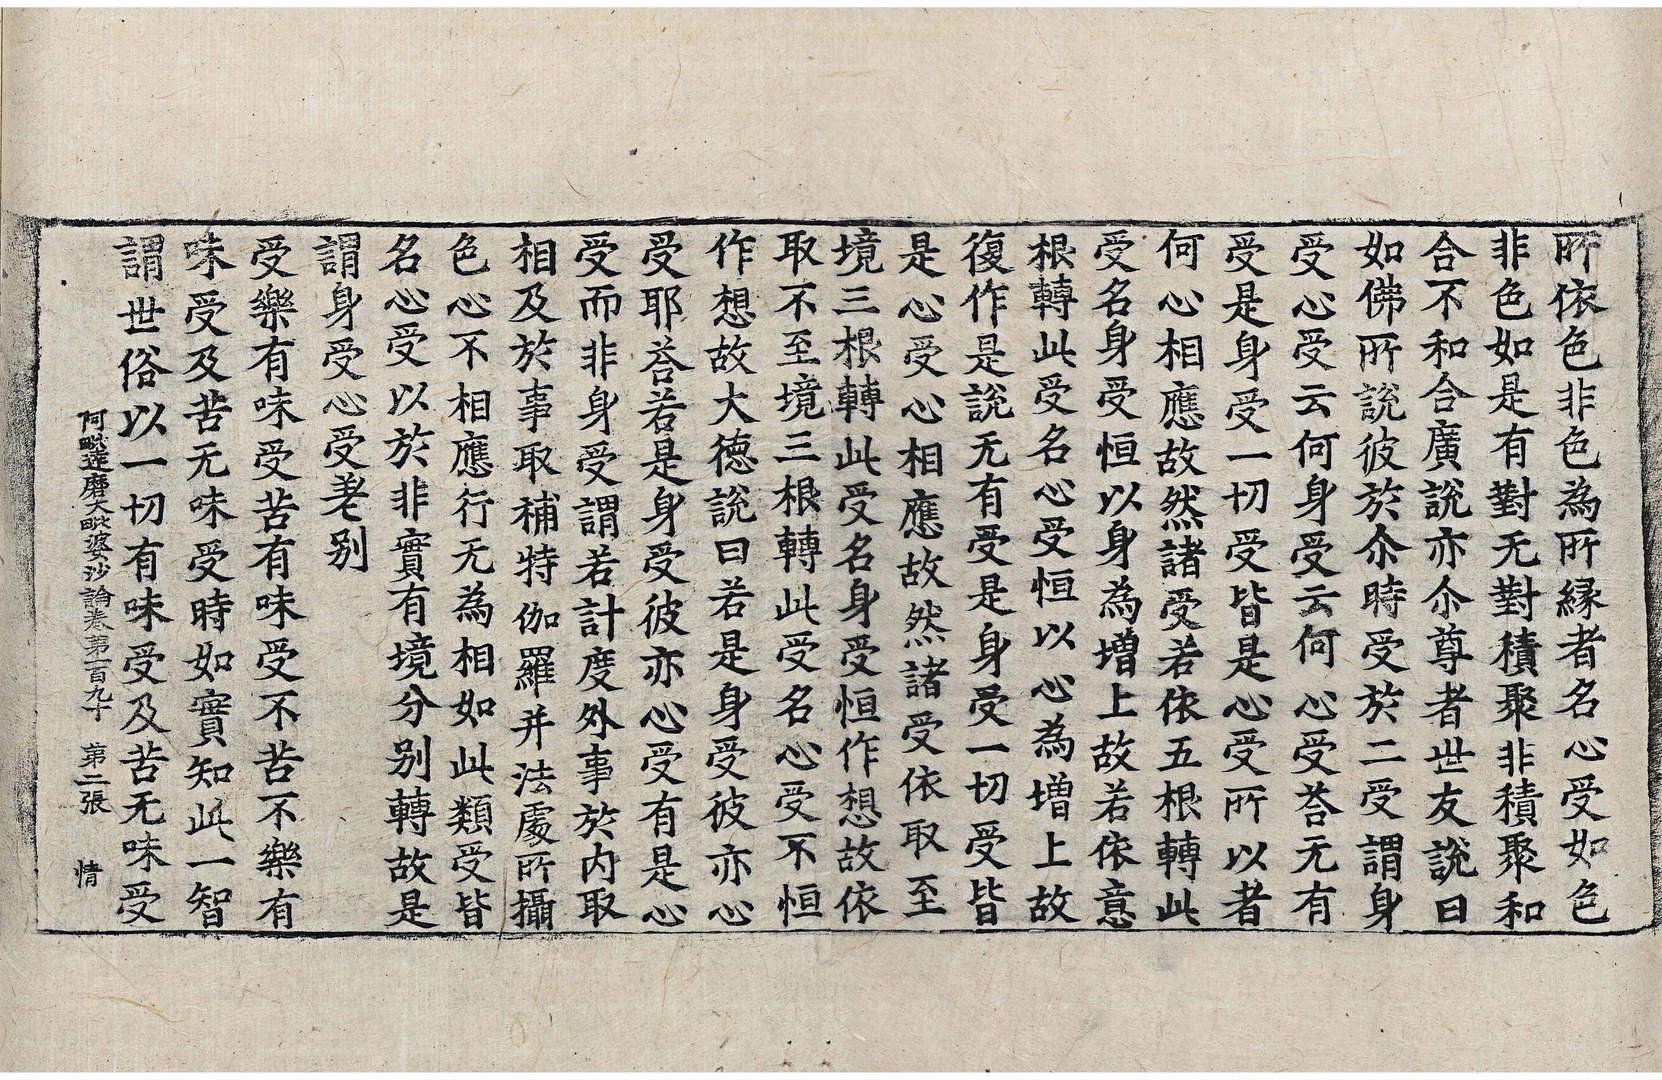 所依色非色為所緣者名心受如色
非色如是有對无對積聚非積聚和
合不和合廣說亦尒尊者世友說曰
如佛所說彼於尒時受於二受謂身
受心受云何身受云何心受荅无有
受是身受一切受皆是心受所以者
何心相應故然諸受若依五根轉此
受名身受恒以身為增上故若依意
根轉此受名心受恒以心為增上故
復作是說无有受是身受一切受皆
是心受心相應故然諸受依取至
境三根轉此受名身受恒作想故依
取不至境三根轉此受名心受不恒
作想故大德說曰若是身受彼亦心
受耶荅若是身受彼亦心受有是心
受而非身受謂若計度外事於內取
相及於事取補特伽羅并法處所攝
色心不相應行无為相如此類受皆
名心受以於非實有境分別轉故是
謂身受心受差別
受樂有味受苦有味受不苦不樂有
味受及苦无味受時如實知此一智
謂世俗以一切有味受及苦无味受
阿毗達磨大毗婆沙論卷第一百九十 第二張 情